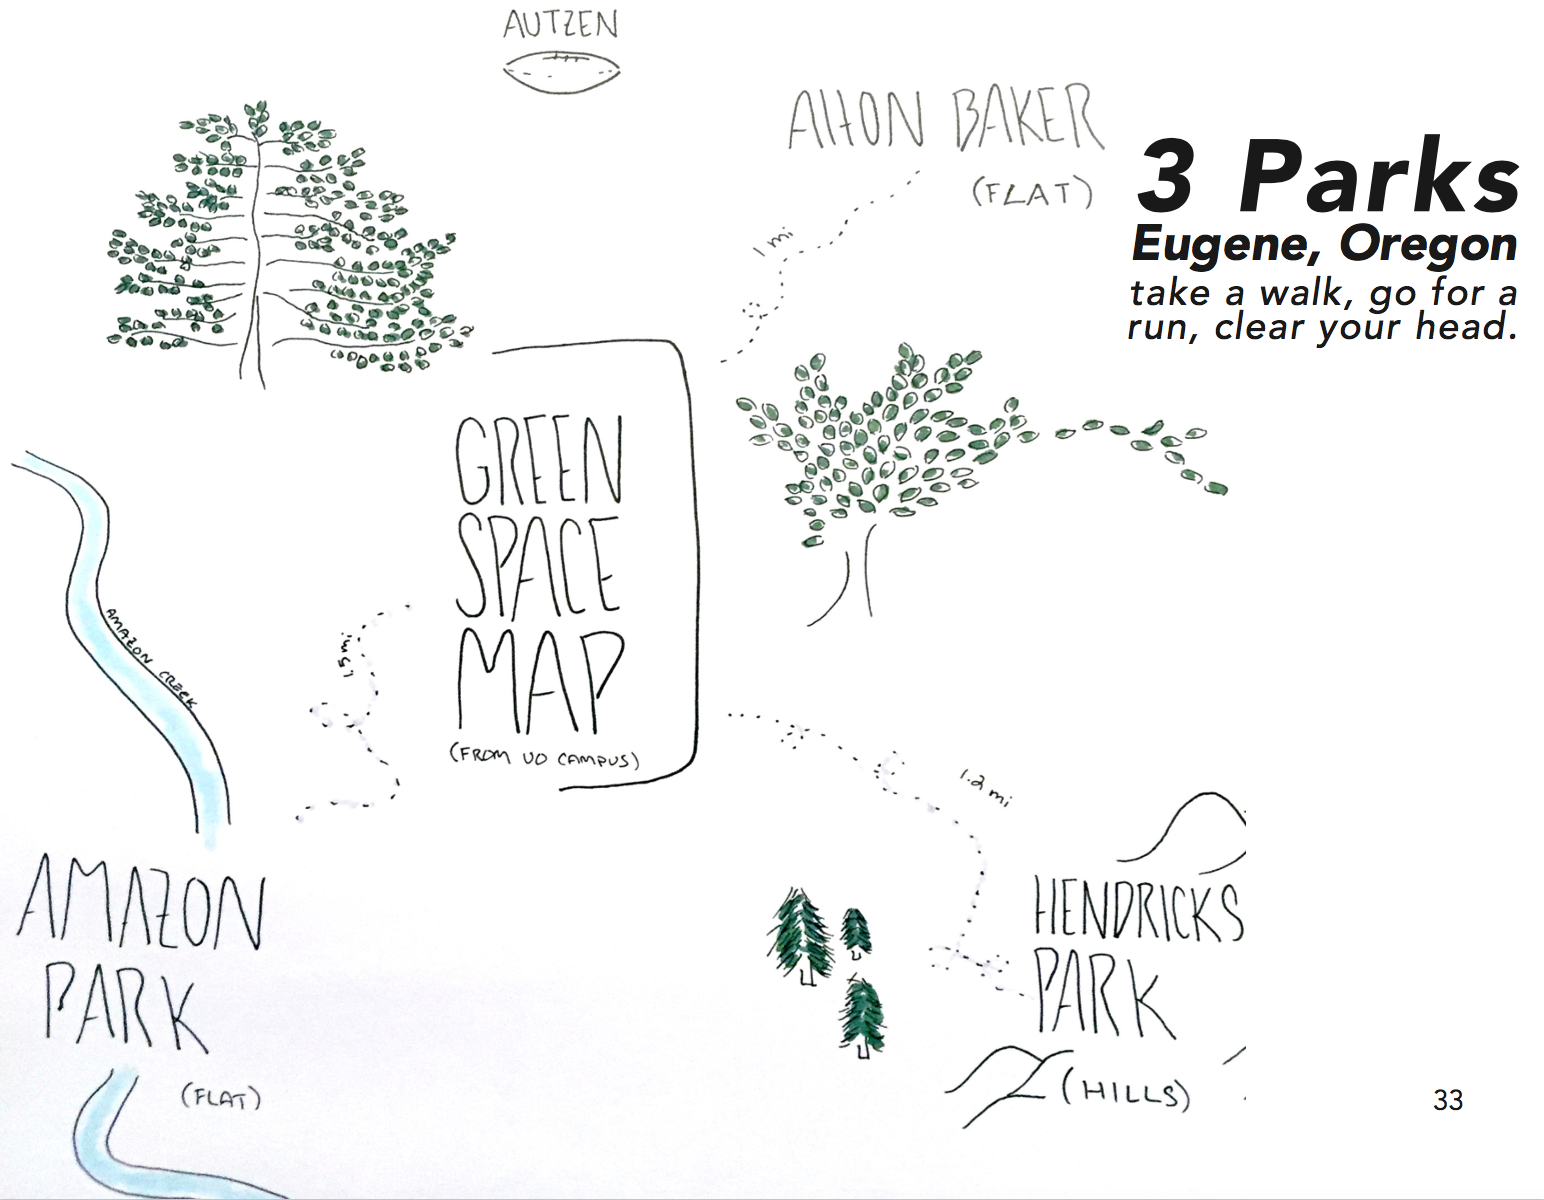 AUTZEN
ALTON BAKER
(FLAT)
3 Parks
Eugene, Oregon
take a walk, go for a
run, clear your head.
1 mi
GREEN
SPACE
MAP
(FROM UO CAMPUS)
AMAZON CREEK
1.5mi
1.2 mi
AMAZON
PARK
(FLAT)
HENDRICKS
PARK
(HILLS)
33